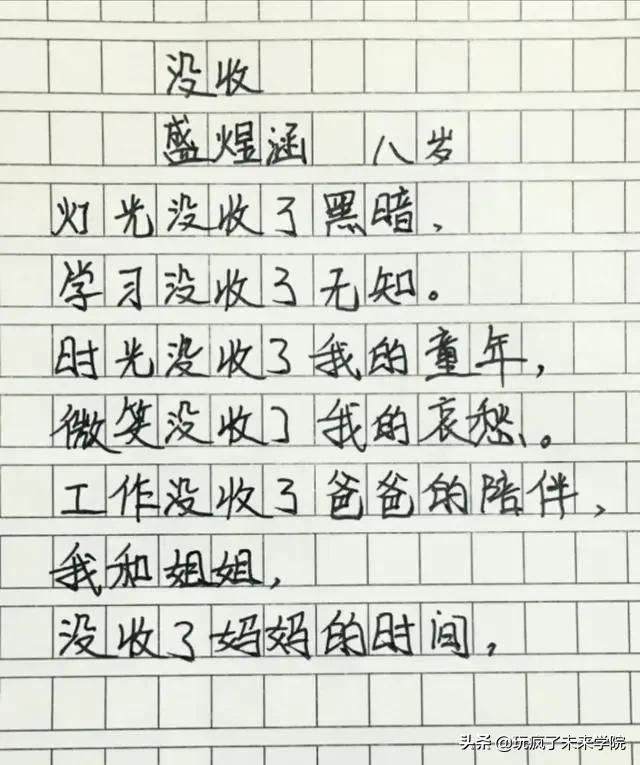 没收
盛煜涵 八岁
灯光没收了黑暗,
学习没收了无知。
时光没收了我的童年,
微笑没收了我的哀愁、。
工作没收了爸爸的陪伴,
我和姐姐,
没收了妈妈的时间,
头条 @玩疯了未来学院